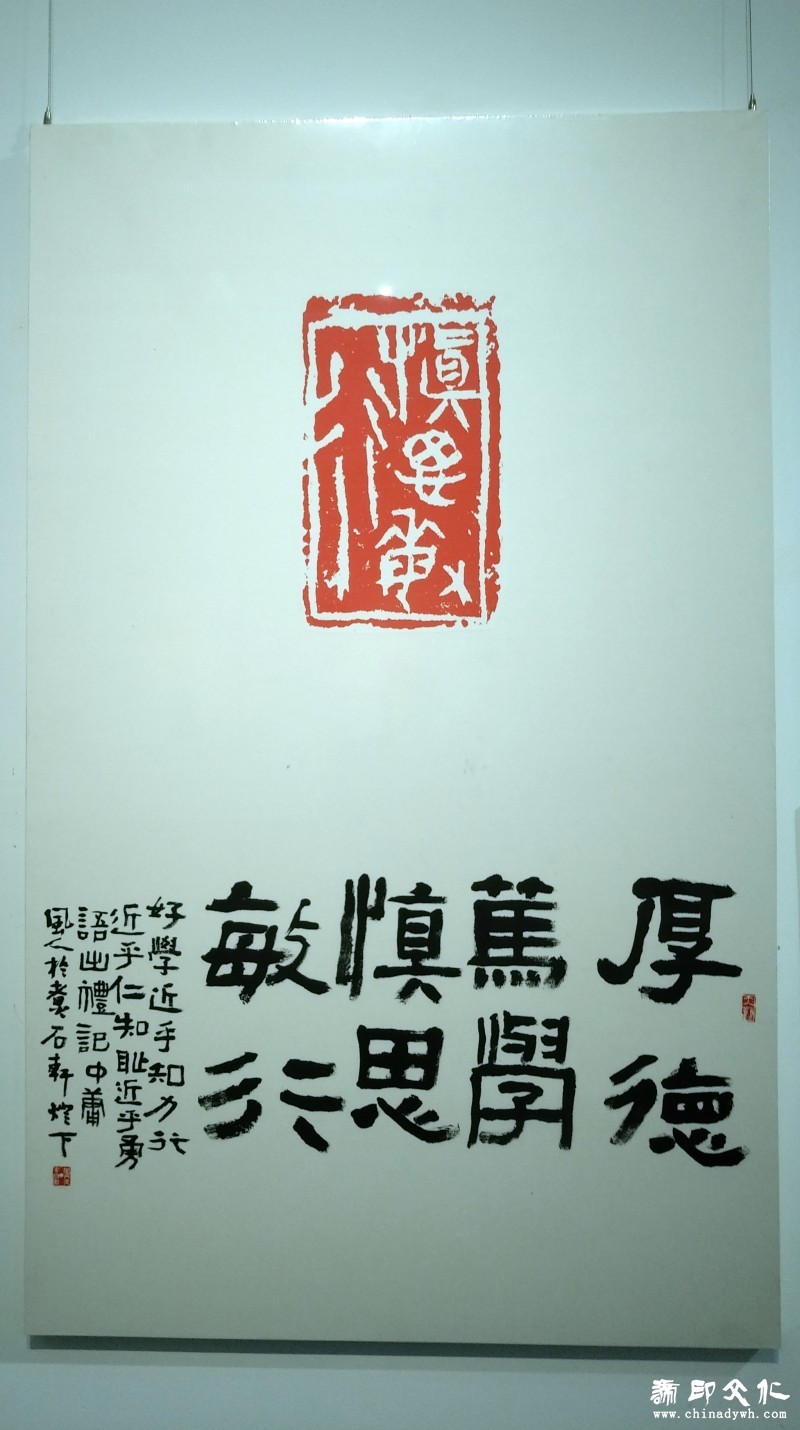 慎思敏行
厚德
篤學
慎思
敏行
好學近乎知力行
近乎仁知耻近乎勇
語出禮記中庸
風人於石軒燈下
印文化
www.chinadywh.com